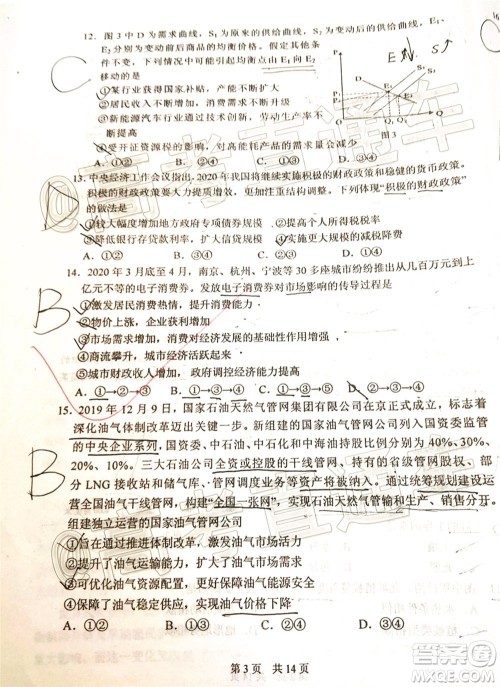 12. 图3中D为需求曲线，S₁为原来的供给曲线，E₁、
E₂分别为变动前后商品的均衡价格。假定其他条
件不变，下列情况中可能引起均衡点由E₁向E₂
移动的是
①某行业获得国家补贴，产能不断扩大
②居民收入不断增加，消费需求不断升级
③新能源汽车行业通过技术创新，劳动生产率不
断提高
④受开征资源税的影响，对高能耗产品的需求量会减少
图3
A. ①②
B. ①③
C. ②④
D. ③④
C
13. 中央经济工作会议指出，2020年我国将继续实施积极的财政政策和稳健的货币政策。
积极的财政政策要大力提质增效，更加注重结构调整。以下体现“积极的财政政策”
的做法是
①较大幅度增加地方政府专项债券规模
②提高个人所得税税率
③降低银行存贷款利率，扩大信贷规模
A. ①②
B. ①④
C. ②③
D. ③④
D
14. 2020年3月底至4月，南京、杭州、宁波等30多座城市纷纷推出从几百万元到上
亿元不等的电子消费券。发放电子消费券对市场影响的传导过程是
①激发居民消费热情，释放消费潜力
②物价上涨，企业利润增加
③市场需求增加，消费对经济发展的基础性作用增强
④商流攀升，城市经济活跃起来
⑤城市财政收入增加，政府调控经济能力提升
B
15. 2019年12月9日，国家石油天然气管网集团有限公司在京正式成立，标志着
深化油气体制改革迈出关键一步。新组建的国家油气管网公司列入国资委监管
的中央企业系列，国资委、中石油、中石化、中海油分别持股约为40%、30%、
20%、10%。三大石油公司全资或控股的干线管网、持有的省级管网股权、部
分LNG接收站和储气库、管网调度业务等资产将被纳入。通过统筹规划建设运
营全国油气干线管网，构建“全国一张网”，实现石油天然气管输和生产、销售分开。
组建独立运营的国家油气管网公司
①旨在通过推进体制改革，激发油气市场活力
②提升了油气运输能力，扩大了油气市场需求
③可优化油气资源配置，更好保障油气能源安全
④保障了油气稳定供应，实现了油气价格下降
A. ①②
B. ①③
C. ②④
D. ③④
B
第3页 共14页